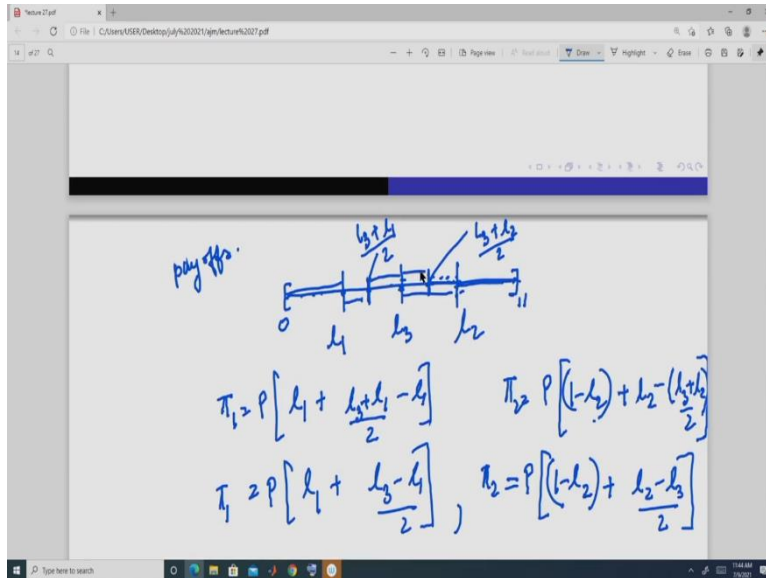 lecture 27.pdf
File | C:/Users/USER/Desktop/july%202021/ajm/lecture%2027.pdf
14 of 27
Page view | Read aloud | Draw Highlight Erase
payoffs.
l3+l1/2 l3+l2/2
0 l1 l3 l2 1
π1 = P[l1 + (l3+l1)/2 - l1] π2 = P[(1-l2) + l2 - (l3+l2)/2]
π1 = P[l1 + (l3-l1)/2] , π2 = P[(1-l2) + (l2-l3)/2]
Type here to search
11:44 AM
7/9/2021